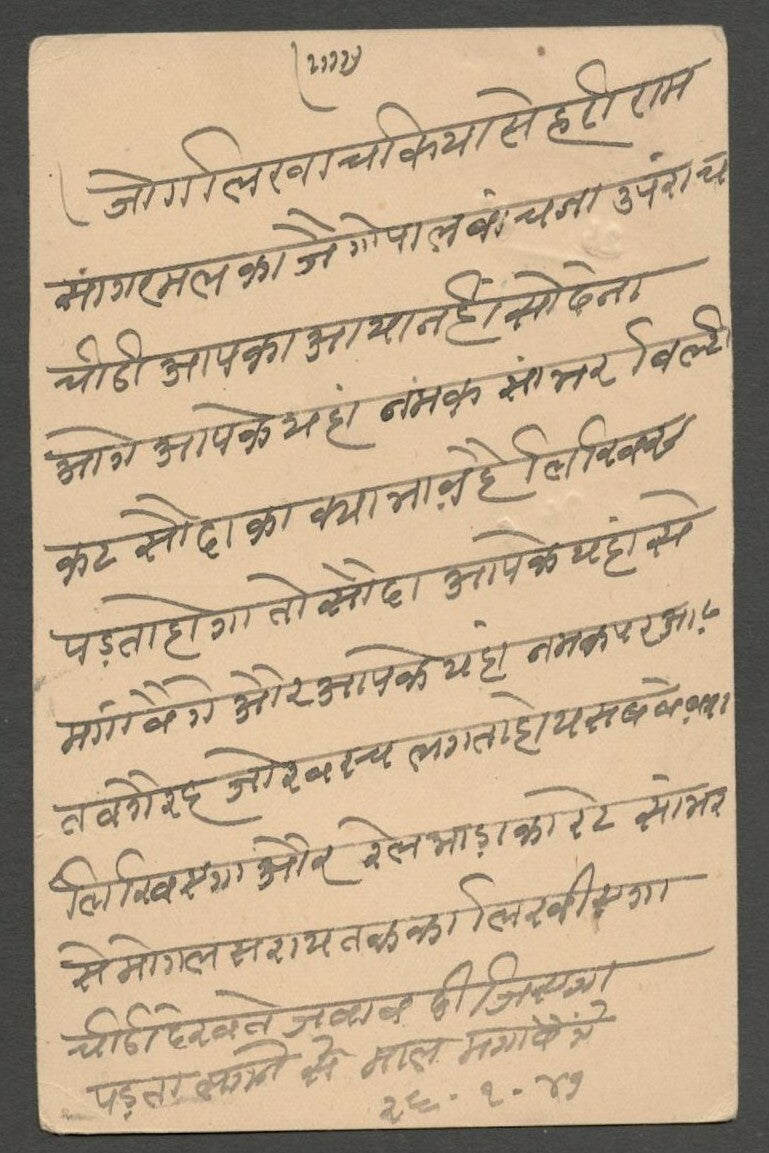 जोग लिखा चकिया से हरी राम
सांगरमल का जै गोपाल बांचना उपंराच
चीठी आपका आया नहीं सो देना
आगे आपके यहां नंमक सांभर विल्टी
कट सौदा का क्या भाव है लिखिएगा
पड़ता होगा तो सौदा आपके यहां से
मंगावैगे और आपके यहां नमक पर आढ़
त वगैरह जो खरच लगता हो य सब वेवरा
लिखिएगा और रेल भाड़ा का रेट सांभर
से मोगलसराय तक का लिखीएगा
चीठी देखते जवाब दीजिएगा
पड़ता लगने से माल मगावैंगे
२६-१-४७